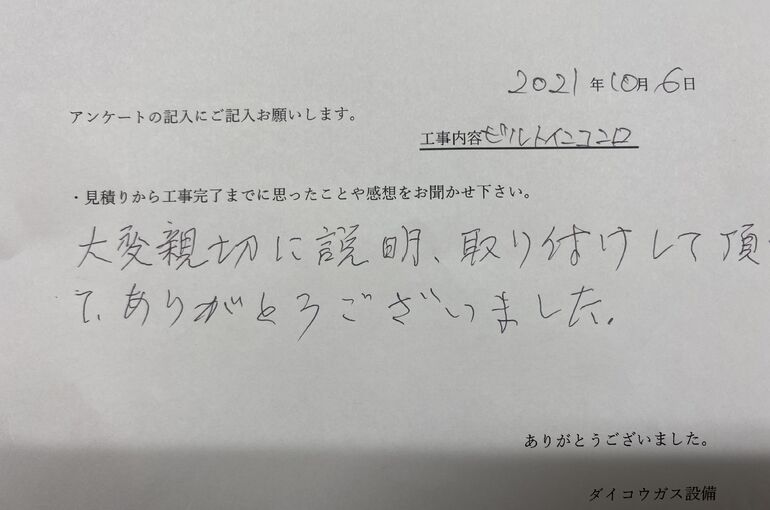 2021年10月6日
アンケートの記入にご記入お願いします。
工事内容ビルトインコンロ
・見積りから工事完了までに思ったことや感想をお聞かせ下さい。
大変親切に説明、取り付けして頂
て、ありがとうございました。
ありがとうございました。
ダイコウガス設備